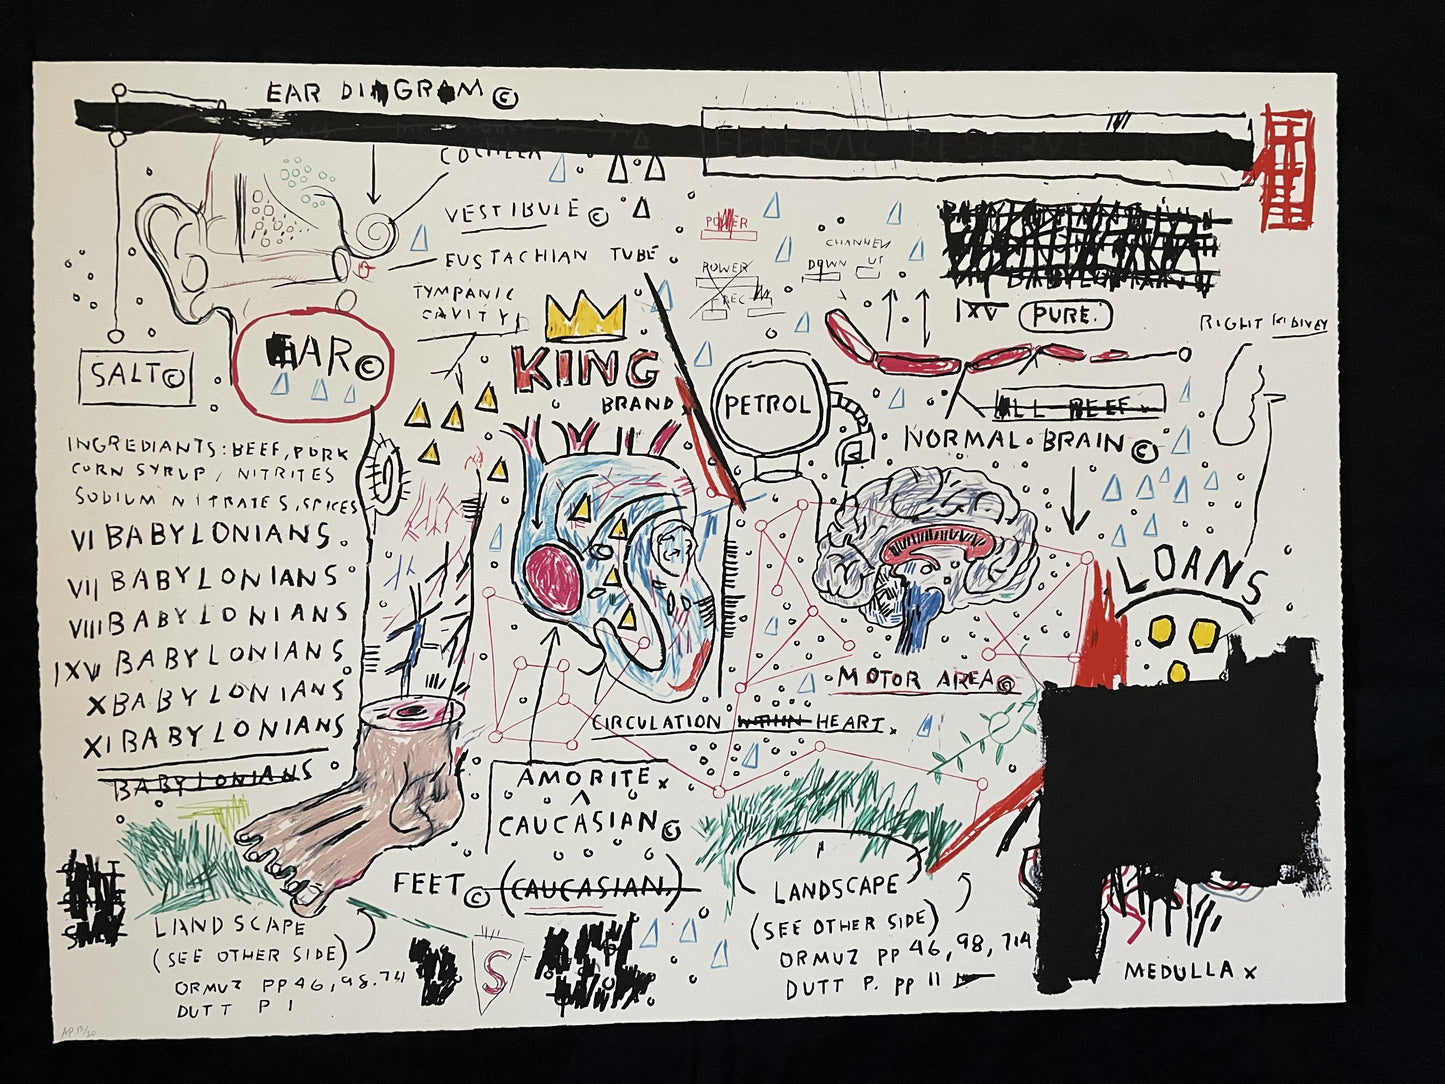 EAR DIAGRAM ©
COCHLEA
FEDERAL RESERVE
VESTIBULE ©
EUSTACHIAN TUBE
TYMPANIC
CAVITY
EAR ©
SALT ©
KING
BRAND
POWER
POWER
REC
CHANNEL
DOWN UP
IXV PURE.
RIGHT KIDNEY
PETROL
ALL BEEF
NORMAL BRAIN ©
INGREDIANTS: BEEF, PORK
CORN SYRUP, NITRITES
SODIUM NITRATES, SPICES
VI BABYLONIANS
VII BABYLONIANS
VIII BABYLONIANS
IXV BABYLONIANS
X BABYLONIANS
XI BABYLONIANS
BABYLONIANS
LOANS
MOTOR AREA ©
CIRCULATION WITHIN HEART.
AMORITE x
^
CAUCASIAN ©
FEET © (CAUCASIAN.)
LANDSCAPE
(SEE OTHER SIDE)
ORMUZ PP 46, 98, 714
DUTT P 1
S
LANDSCAPE
(SEE OTHER SIDE)
ORMUZ PP 46, 98, 714
DUTT P. PP 11
MEDULLA x